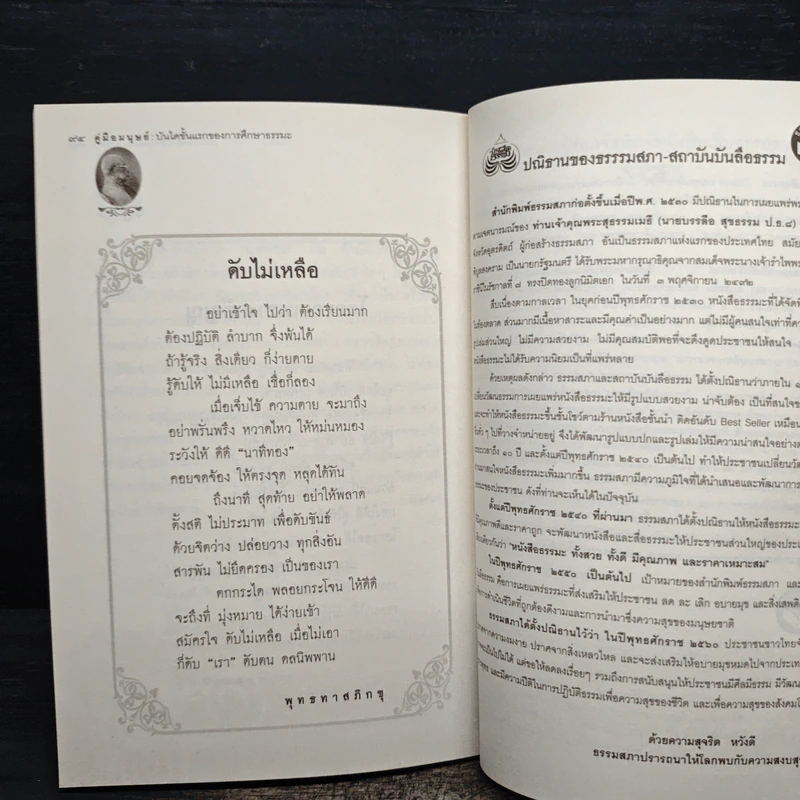 ๙๔ คู่มือมนุษย์ : บันไดขั้นแรกของการศึกษาธรรมะ
ดับไม่เหลือ
อย่าเข้าใจ ไปว่า ต้องเรียนมาก
ต้องปฏิบัติ ลำบาก จึงพ้นได้
ถ้ารู้จริง สิ่งเดียว ก็ง่ายดาย
รู้ดับให้ ไม่มีเหลือ เชื่อก็ลอง
เมื่อเจ็บไข้ ความตาย จะมาถึง
อย่าพรั่นพรึง หวาดไหว ให้หม่นหมอง
ระวังให้ ดีดี “นาทีทอง”
คอยจดจ้อง ให้ตรงจุด หลุดได้ทัน
ถึงนาที สุดท้าย อย่าให้พลาด
ตั้งสติ ไม่ประมาท เพื่อดับขันธ์
ด้วยจิตว่าง ปล่อยวาง ทุกสิ่งอัน
สารพัน ไม่ยึดครอง เป็นของเรา
ตกกระได พลอยกระโจน ให้ดีดี
จะถึงที่ มุ่งหมาย ได้ง่ายเข้า
สมัครใจ ดับไม่เหลือ เมื่อไม่เอา
ก็ดับ “เรา” ดับตน ดลนิพพาน
พุทธทาสภิกขุ
ปณิธานของธรรมสภา-สถาบันบันลือธรรม
สำนักพิมพ์ธรรมสภาก่อตั้งขึ้นเมื่อปีพ.ศ. ๒๕๓๐ มีปณิธานในการเผยแพร่
ตามเจตนารมณ์ของ ท่านเจ้าคุณพระสุธรรมเมธี (นายบรรลือ สุขธรรม ป.ธ.๘)
จังหวัดอุตรดิตถ์ ผู้ก่อสร้างธรรมสภา อันเป็นธรรมสภาแห่งแรกของประเทศไทย
เป็นนายกรัฐมนตรี ได้รับพระมหากรุณาธิคุณจากสมเด็จพระนางเจ้ารำไพพร
ในรัชกาลที่ ๗ ทรงปิดทองลูกนิมิตเอก ในวันที่ ๓ พฤศจิกายน ๒๔๙๒
สืบเนื่องตามกาลเวลา ในยุคก่อนปีพุทธศักราช ๒๕๓๐ หนังสือธรรมะที่ได้จัด
ส่วนมากมีเนื้อหาสาระและมีคุณค่าเป็นอย่างมาก แต่ไม่มีผู้คนสนใจเท่าที่
รูปเล่มส่วนใหญ่ ไม่มีความสวยงาม ไม่มีคุณสมบัติพอที่จะดึงดูดประชาชนให้สนใจ
หนังสือธรรมะไม่ได้รับความนิยมเป็นที่แพร่หลาย
ด้วยเหตุผลดังกล่าว ธรรมสภาและสถาบันบันลือธรรม ได้ตั้งปณิธานว่าภายใน
เปลี่ยนวัฒนธรรมการเผยแพร่หนังสือธรรมะให้มีรูปแบบสวยงาม น่าจับต้อง เป็นที่สนใจ
และจะทำให้หนังสือธรรมะขึ้นชั้นโชว์ตามร้านหนังสือชั้นนำ ติดอันดับ Best Seller เหมือน
ไปที่วางจำหน่ายอยู่ จึงได้พัฒนารูปแบบปกและรูปเล่มให้มีความน่าสนใจอย่าง
ถึง ๑๐ ปี และตั้งแต่ปีพุทธศักราช ๒๕๔๐ เป็นต้นไป ทำให้ประชาชนเปลี่ยน
สนใจหนังสือธรรมะเพิ่มมากขึ้น ธรรมสภามีความภูมิใจที่ได้นำเสนอและพัฒนาการ
ของประชาชน ดังที่ท่านจะเห็นได้ในปัจจุบัน
ตั้งแต่ปีพุทธศักราช ๒๕๔๐ ที่ผ่านมา ธรรมสภาได้ตั้งปณิธานให้หนังสือธรรมะ
คุณภาพดีและราคาถูก จะพัฒนาหนังสือและสื่อธรรมะให้ประชาชนส่วนใหญ่ของประเทศ
เดียวกันว่า “หนังสือธรรมะ ทั้งสวย ทั้งดี มีคุณภาพ และราคาเหมาะสม”
ในปีพุทธศักราช ๒๕๕๐ เป็นต้นไป เป้าหมายของสำนักพิมพ์ธรรมสภา และ
คือการเผยแพร่ธรรมะที่ส่งเสริมให้ประชาชน ลด ละ เลิก อบายมุข และสิ่งเสพติด
การดำเนินชีวิตที่ถูกต้องดีงามและการนำมาซึ่งความสุขของมนุษยชาติ
ธรรมสภาได้ตั้งปณิธานไว้ว่า ในปีพุทธศักราช ๒๕๖๐ ประชาชนชาวไทย
จากความงมงาย ปราศจากสิ่งเหลวไหล และจะส่งเสริมให้อบายมุขหมดไปจากประเทศ
เป็นไปไม่ได้ แต่ขอให้ลดลงเรื่อยๆ รวมถึงการสนับสนุนให้ประชาชนมีศีลมีธรรม
และมีความปีติในการปฏิบัติธรรมเพื่อความสุขของชีวิต และเพื่อความสุขของสังคม
ด้วยความสุจริต หวังดี
ธรรมสภาปรารถนาให้โลกพบกับความสงบสุข